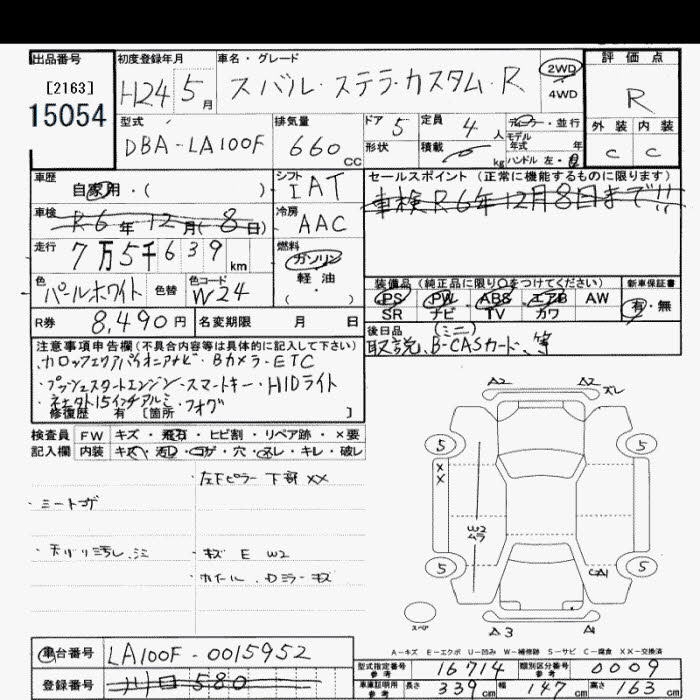 出品番号
[2163]
15054
初度登録年月
H24 5月
車名・グレード
スバル・ステラ・カスタム・R
2WD
4WD
評価点
R
外装 内装
C C
型式
DBA-LA100F
排気量
660cc
ドア 5
形状
定員 4人
積載 kg
ディーラー・並行
モデル年式 年
ハンドル 左・右
車歴
自家用・( )
シフト
IAT
セールスポイント(正常に機能するものに限ります)
車検R6年12月8日まで!!
車検
R6年12月(8日)
冷房
AAC
走行
7万5千639km
燃料
ガソリン
軽油
( )
色
パールホワイト
色替
色コード
W24
装備品(純正品に限り○をつけてください)
PS・PW・ABS・エアB AW
SR ナビ TV カワ
新車保証書
有・無
R券 8,490円
名変期限 月 日
後日品 (ミニ)
取説、B-CASカード、等
注意事項申告欄(不具合内容等は具体的に記入して下さい)
・Bカメラ・ETC
・プッシュスタートエンジン・スマートキー・HIDライト
15インチアルミ・フォグ
修復歴 有 [箇所 ]
検査員 FW キズ・飛石・ヒビ割・リペア跡・×要
記入欄 内装 キズ・汚れ・コゲ・穴・スレ・キレ・破レ
・左Fピラー下部XX
・シートコゲ
・天バリ汚レ、シミ
・キズ E W2
・ホイール、Dミラーキズ
A2 A2 ズレ
5 5
XX
W2
ムラ
5 5
CA1
スペア
A3 A1
A-キズ E-エクボ U-凹み W-補修跡 S-サビ C-腐食 XX-交換済
車台番号 LA100F-0015952
登録番号 川口580
型式指定番号 参考 16714 類別区分番号 参考 0009
車庫証明用 参考 長さ 339cm 幅 147cm 高さ 163cm